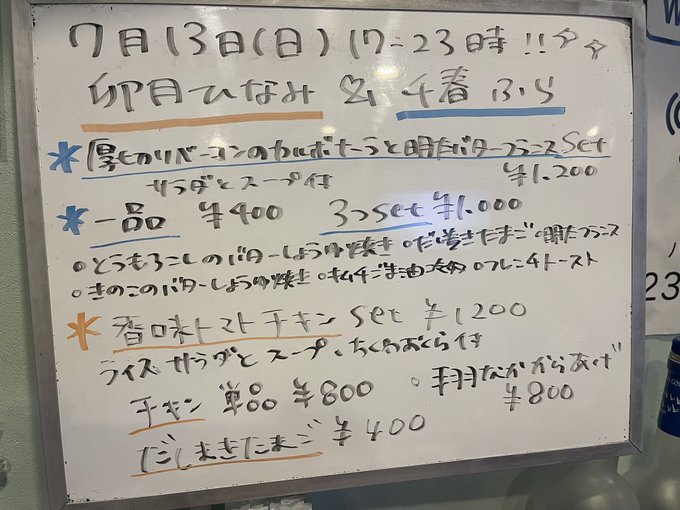 7月13日(日) 17-23時!!
卯月ひなみ & 千春ふら
* 厚切りベーコンのカルボナーラと明太バターフランス Set
サラダとスープ付 ¥1.200
* 一品 ¥400 3つset ¥1.000
○とうもろこしのバターしょうゆ焼き ○だし巻きたまご ○明太フランス
○きのこのバターしょうゆ焼き ○キムチごま油 ○フレンチトースト
* 香味トマトチキン set ¥1200
ライス サラダとスープ、ちくわおくら付
チキン 単品 ¥800 ○手羽なかからあげ
¥800
だしまきたまご ¥400
23